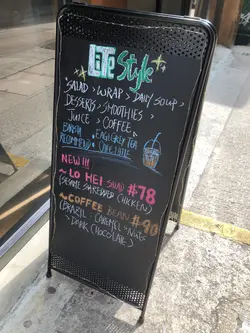 LiTE Style
SALAD > WRAP > DAILY SOUP >
DESSERTS > SMOOTHIES >
JUICE > COFFEE
EARL GREY TEA
RECOMMEND: CAFE LATTE
NEW!!!
~ LO HEI SALAD #78
(SESAME SHREDDED CHICKEN)
~ COFFEE BEAN #90
(BRAZIL. CARAMEL. NUTS
DARK CHOCOLATE)